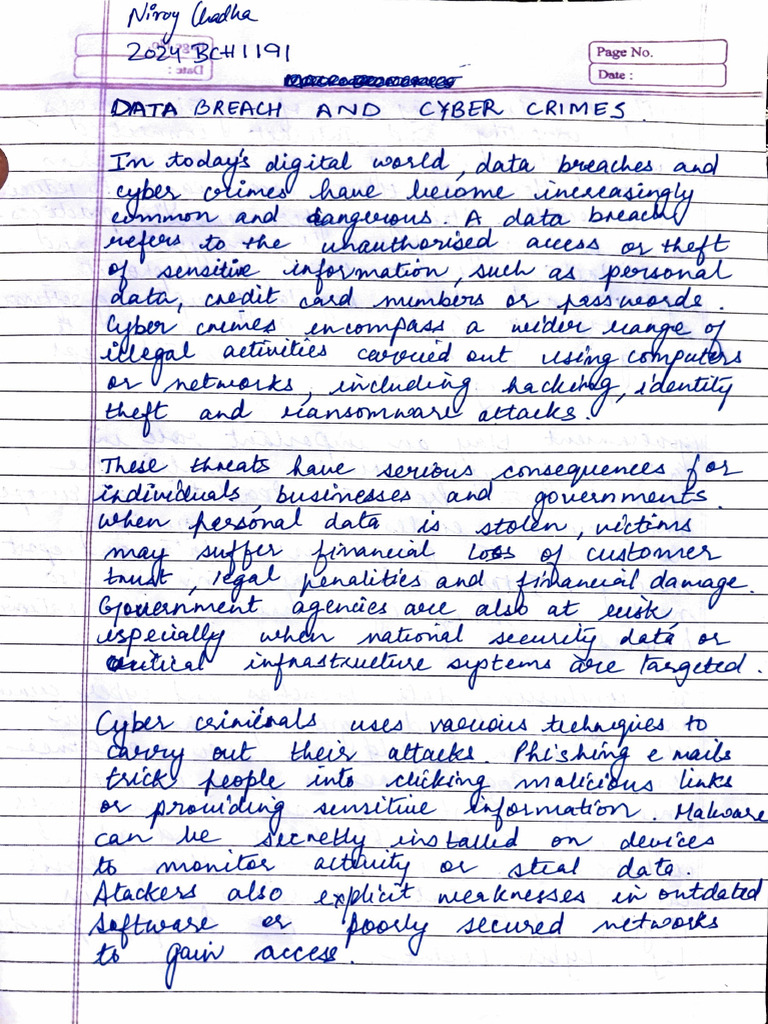 Niroy Chadha
2024 BCH1191
Page No.
Date :
DATA BREACH AND CYBER CRIMES.
In today's digital world, data breaches and
cyber crimes have become increasingly
common and dangerous. A data breach
refers to the unauthorised access or theft
of sensitive information, such as personal
data, credit card numbers or passwords.
Cyber crimes encompass a wider range of
illegal activities carried out using computers
or networks, including hacking, identity
theft and ransomware attacks.
These threats have serious consequences for
individuals, businesses and governments.
When personal data is stolen, victims
may suffer financial loss of customer
trust, legal penalities and financial damage.
Government agencies are also at risk,
especially when national security data or
critical infrastructure systems are targeted.
Cyber criminals uses various techniques to
carry out their attacks. Phishing e mails
trick people into clicking malicious links
or providing sensitive information. Malware
can be secretly installed on devices
to monitor activity or steal data.
Atackers also explicit weaknesses in outdated
software or poorly secured networks
to gain access.